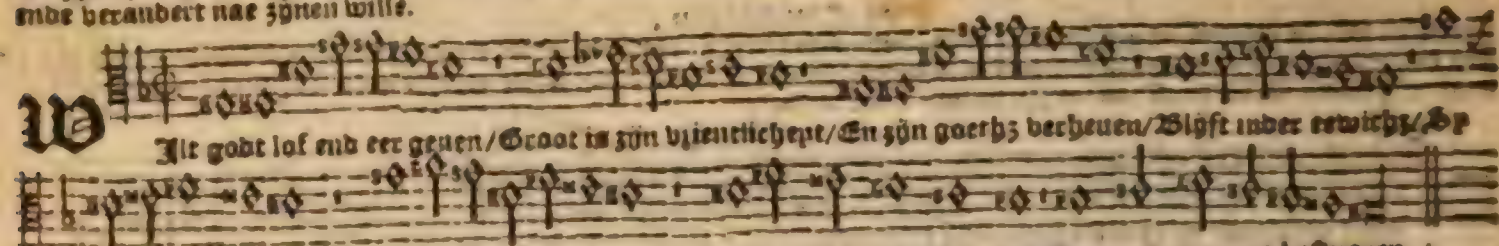 ende verandert nae zijnen wille.
WIlt godt lof end eer geuen/Groot is zijn vrientlicheyt/En zijn goethz verheuen/Blijft inder eewicht/Sp